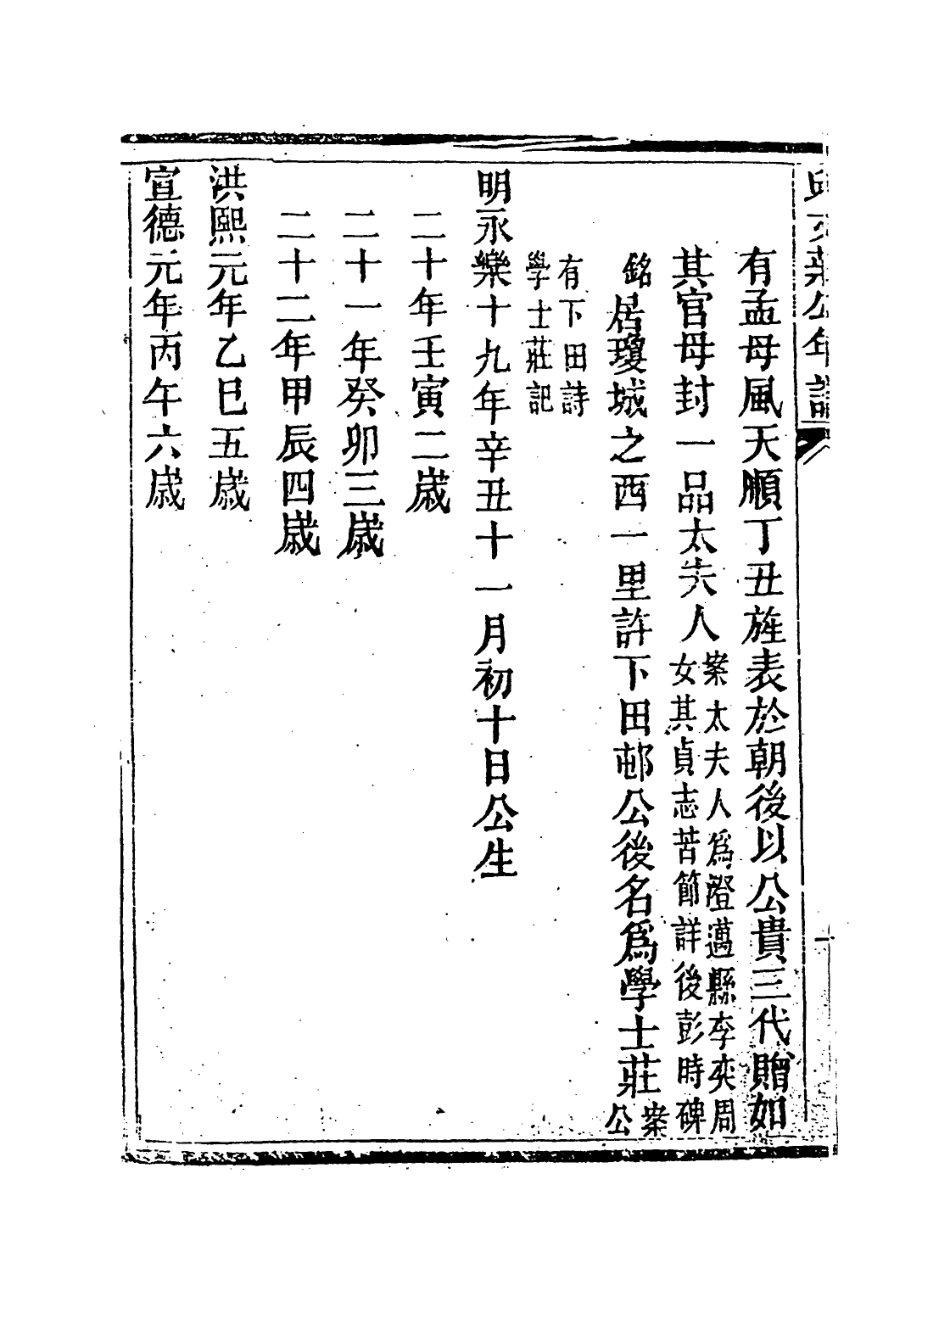 邱文莊公年譜
有孟母風天順丁丑旌表於朝後以公貴三代贈如
其官母封一品太夫人案太夫人爲澄邁縣李奕周
女其貞志苦節詳後彭時碑
銘居瓊城之西一里許下田邨公後名爲學士莊案
公
有下田詩
學士莊記
明永樂十九年辛丑十一月初十日公生
二十年壬寅二歲
二十一年癸卯三歲
二十二年甲辰四歲
洪熙元年乙巳五歲
宣德元年丙午六歲